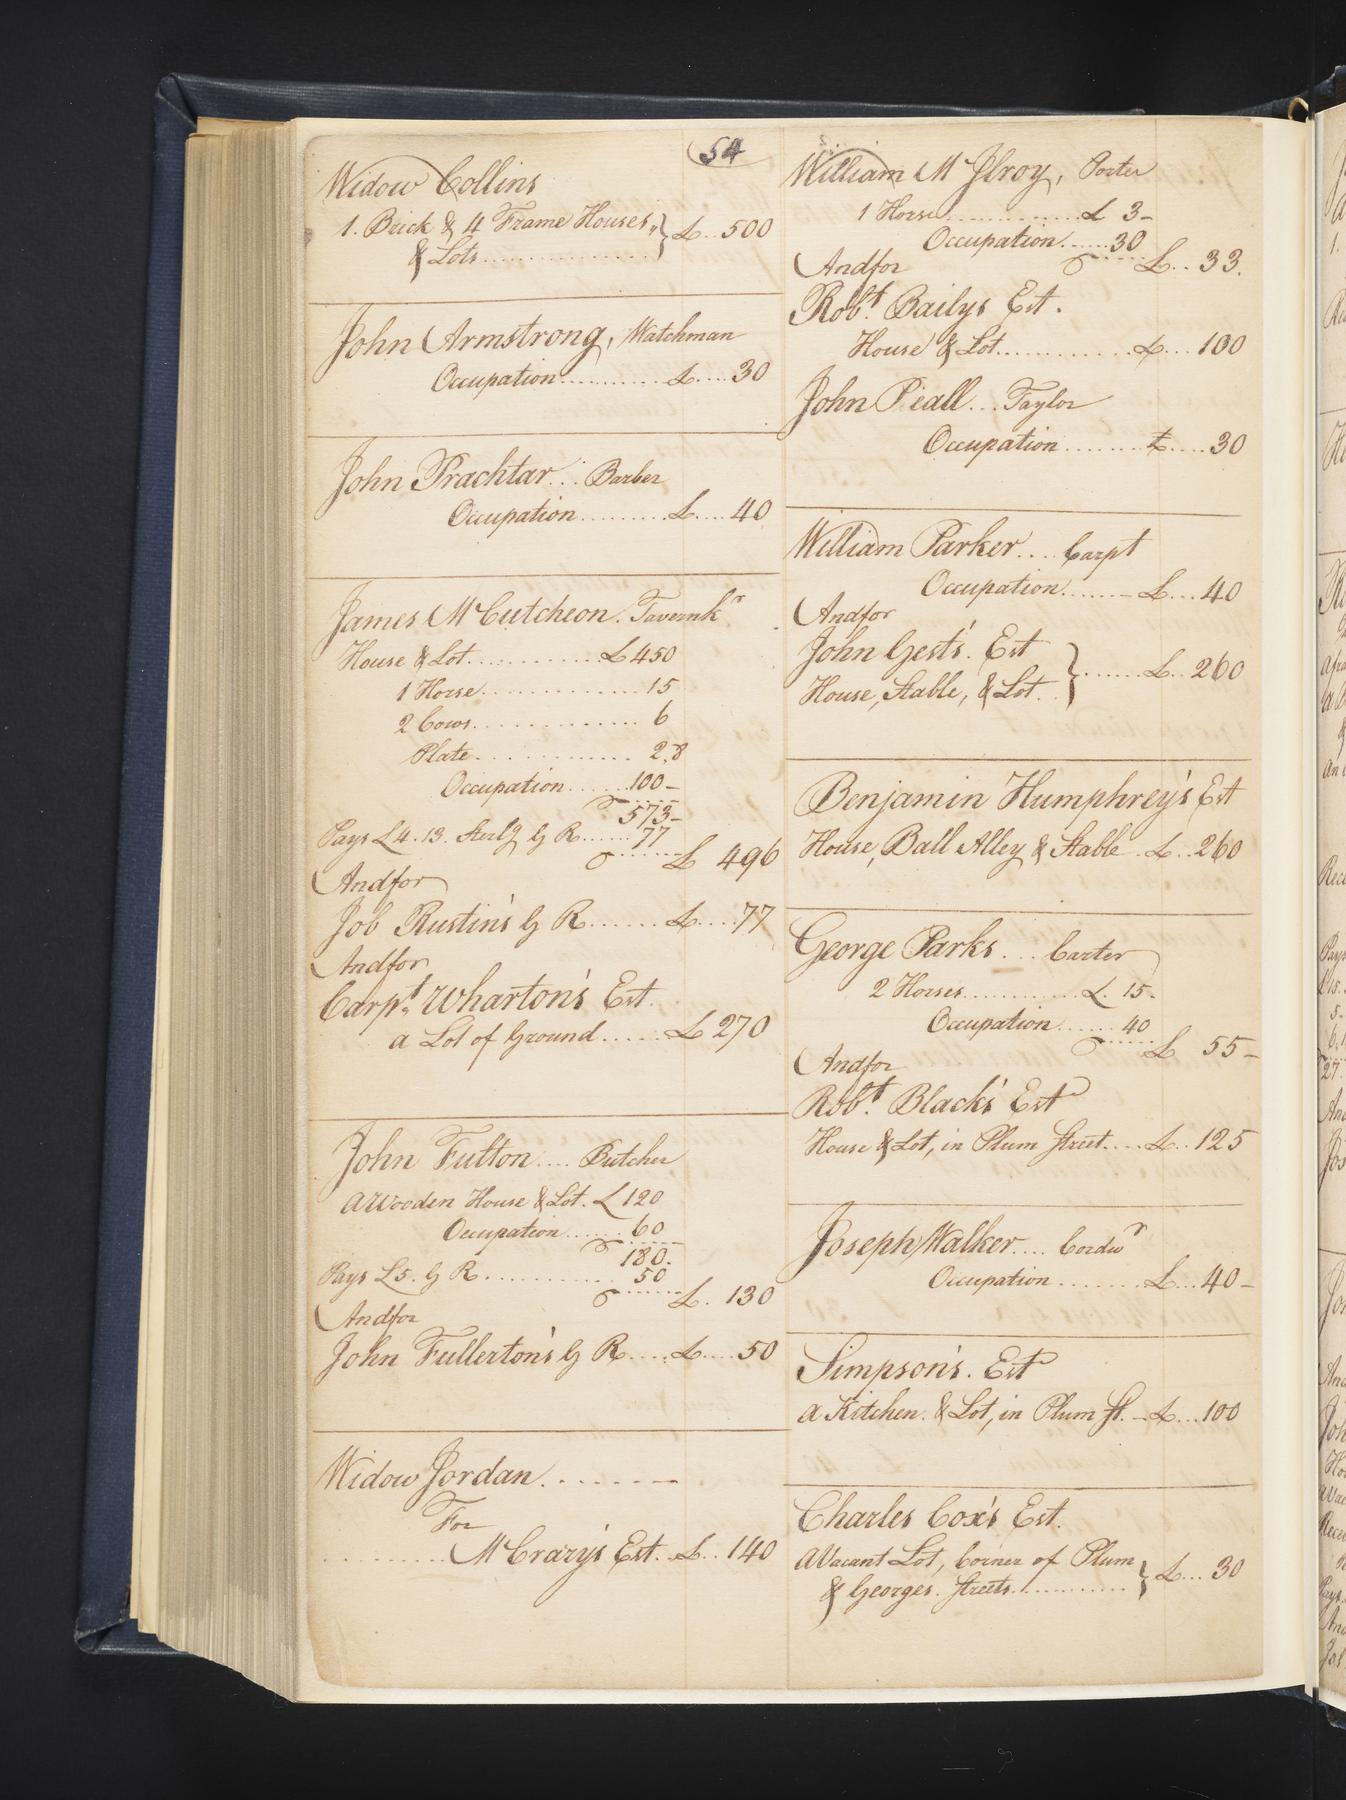 54
Widow Collins
1. Brick & 4 Frame Houses,, } £.. 500
& Lots
John Armstrong, Watchman
Occupation £.... 30
John Prachtar... Barber
Occupation £.... 40
James McCutcheon. Tavernkr
House & Lot £450
1 Horse 15
2 Cows 6
Plate 2.8
Occupation 100-
573-
Pays £4.13. Sterlg G R 77
£ 496
And for
Job Rustin's G R £.... 77
And for
Carpt. Wharton's Est.
a Lot of Ground £ 270
John Fulton.... Butcher
A Wooden House & Lot. £120
Occupation 60
180.
Pays £5. G R 50
£. 130
And for
John Fullerton's G R £.... 50
Widow Jordan
For
McCrary's Est. £.. 140
William McIlroy, Porter
1 Horse £ 3-
Occupation 30
£.. 33.
And for
Robt. Bailys Est.
House & Lot £.... 100
John Peall... Taylor
Occupation £.... 30
William Parker.... Carpt
Occupation £... 40
And for
John Gest's. Est
House, Stable, & Lot } £.. 260
Benjamin Humphrey's Est
House, Ball Alley & Stable £.. 260
George Parks... Carter
2 Horses £. 15.
Occupation 40
£ 55-
And for
Robt. Black's Est
House & Lot, in Plum Street.... £.. 125
Joseph Walker.... Cordwr
Occupation £... 40-
Simpson's. Est
a Kitchen. & Lot, in Plum St. £... 100
Charles Cox's Est.
A Vacant Lot, Corner of Plum } £... 30
& Georges. Streets